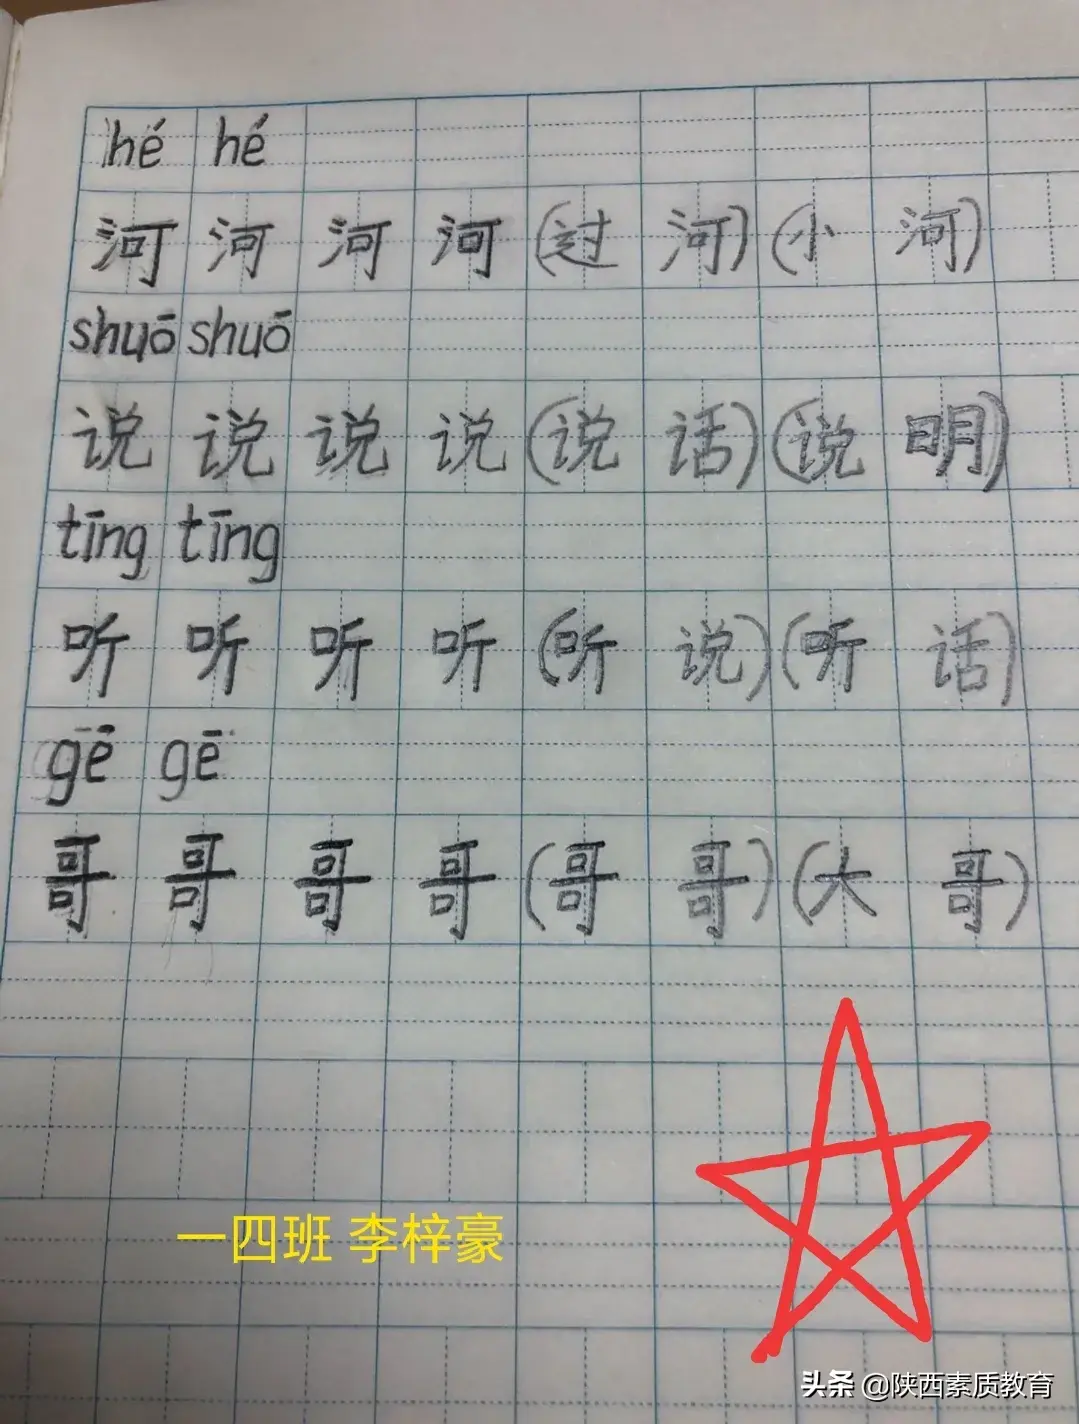 hé hé
河 河 河 河 (过 河) (小 河)
shuō shuō
说 说 说 说 (说 话) (说 明)
tīng tīng
听 听 听 听 (听 说) (听 话)
gē gē
哥 哥 哥 哥 (哥 哥) (大 哥)
一四班 李梓豪
头条 @陕西素质教育